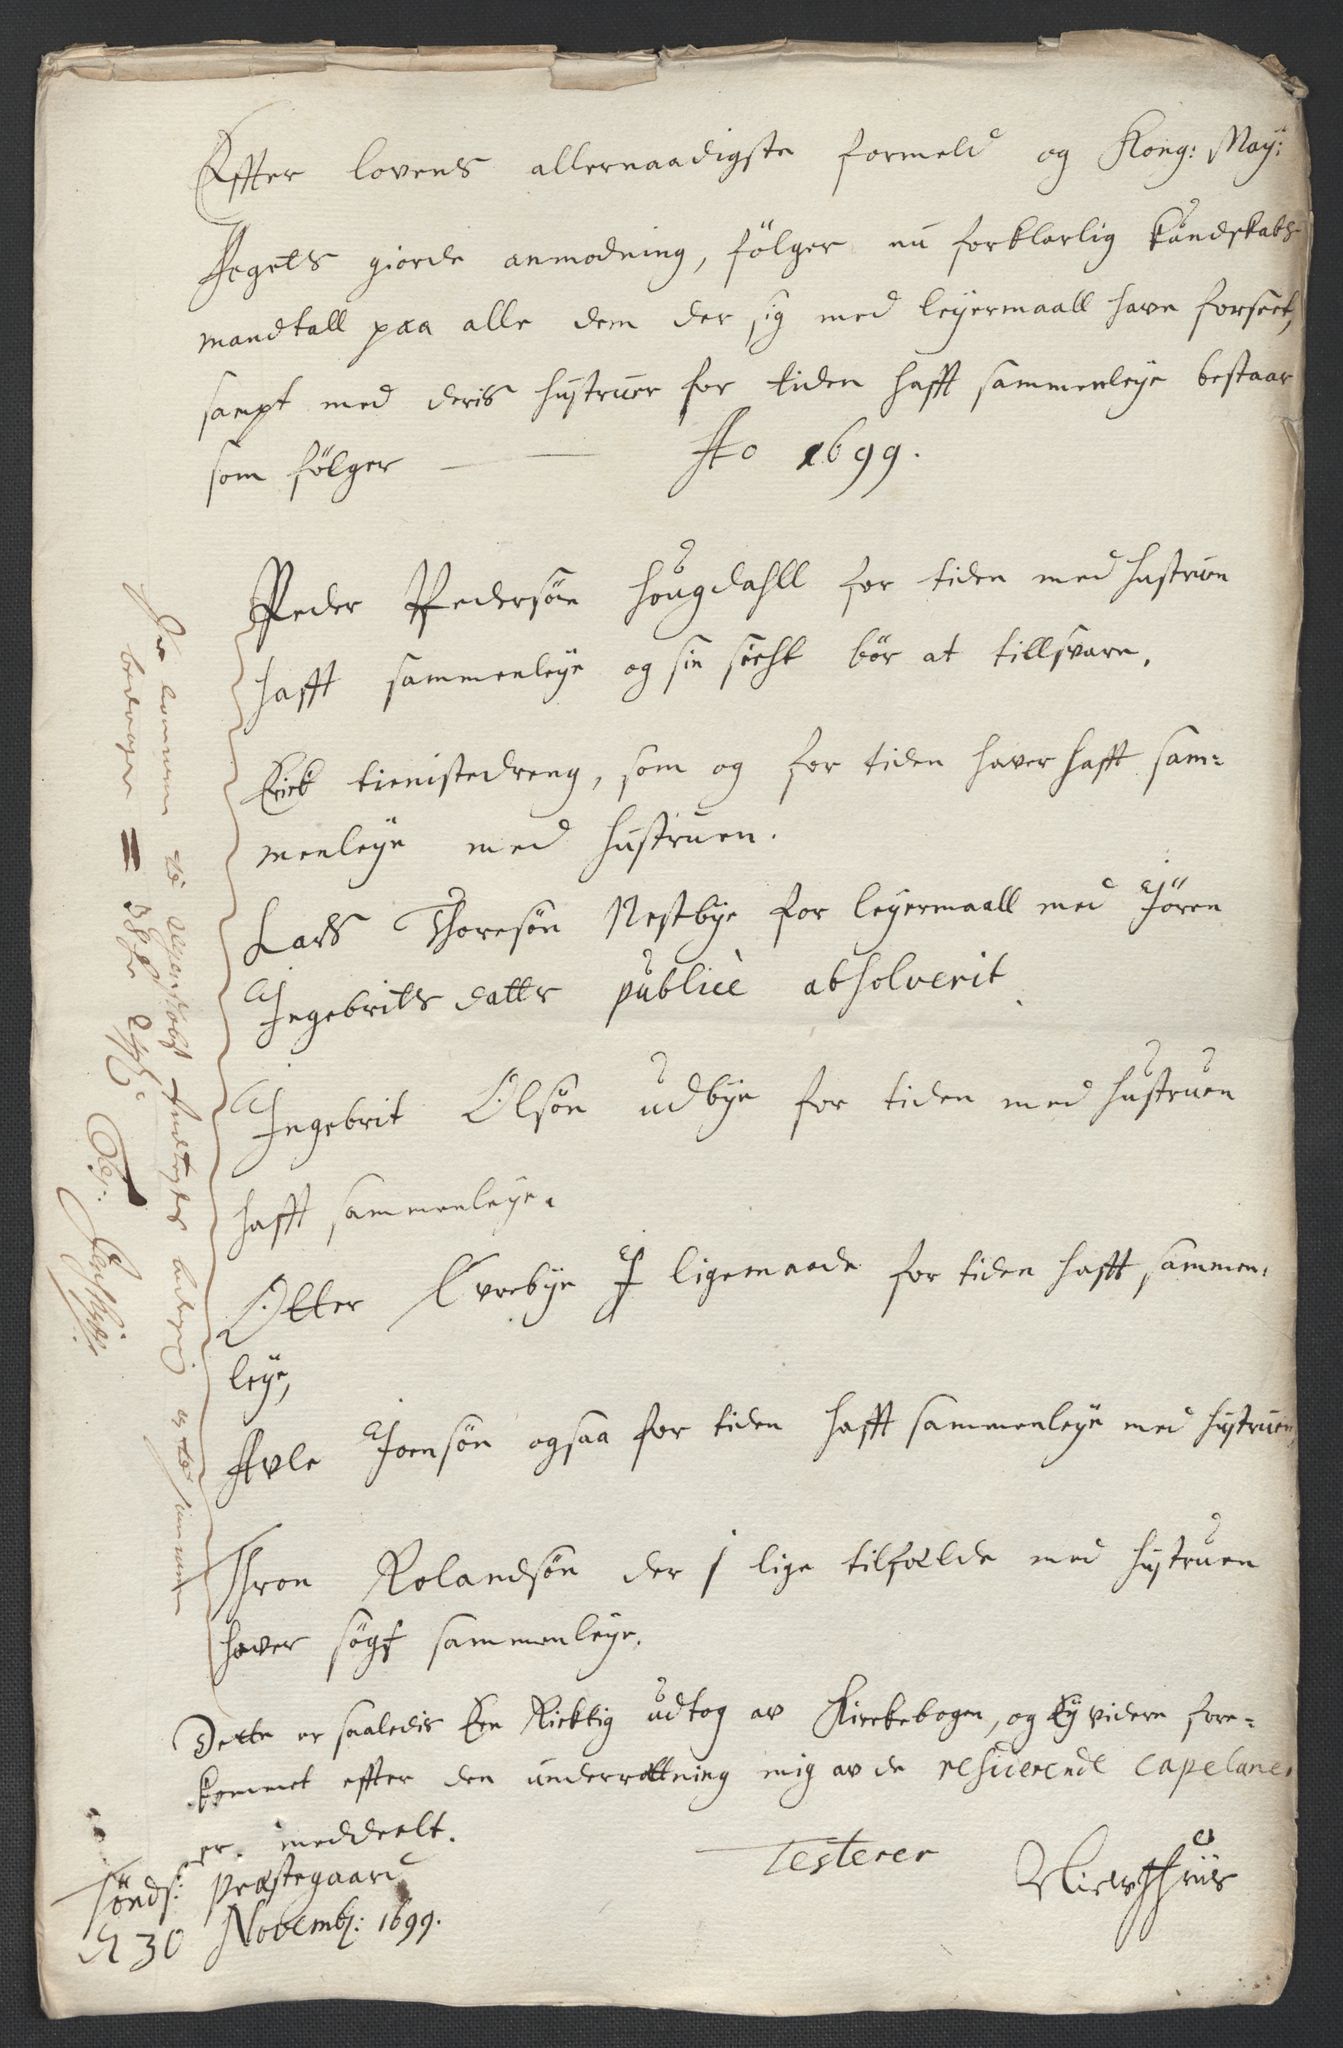 Effter lovens allernaadigste formeld og Kong: May:
Fogets giorde anmodning, fölger nu forklarlig kundskabs
mandtall paa alle dem der sig med leyermaall have forseet,
sampt med deris hustruer for tiden hafft sammenleye bestaar
som fölger Ao 1699.
Peder Pedersön Hougdahll for tiden med hustruen
hafft sammenleye og sin sicht bör at tillsvare.
Erick tienistedreng, som og for tiden haver hafft sam-
menleye med hustruen.
Lars Thoresön Nestbye for leyermaall med Jören
Ingebrits datter publicè absolverit
Ingebrit Olsön udbye for tiden med hustruen
hafft sammenleye.
Otter Evrebye J ligemaade for tiden hafft sammen-
leye,
Avle Joensön ogsaa for tiden hafft sammenleye med hustruen,
Thron Rolandsön der i lige tilfælde med hustruen
haver sögt sammenleye.
Dette er saaledis Een Ricktig udtog av Kirckebogen, og Ey videre fore-
kommet effter den underrettning mig av de residerende capelaner
er meddeelt.
Testerer
Præstegaard
d 30 Novemb: 1699.
bedrager